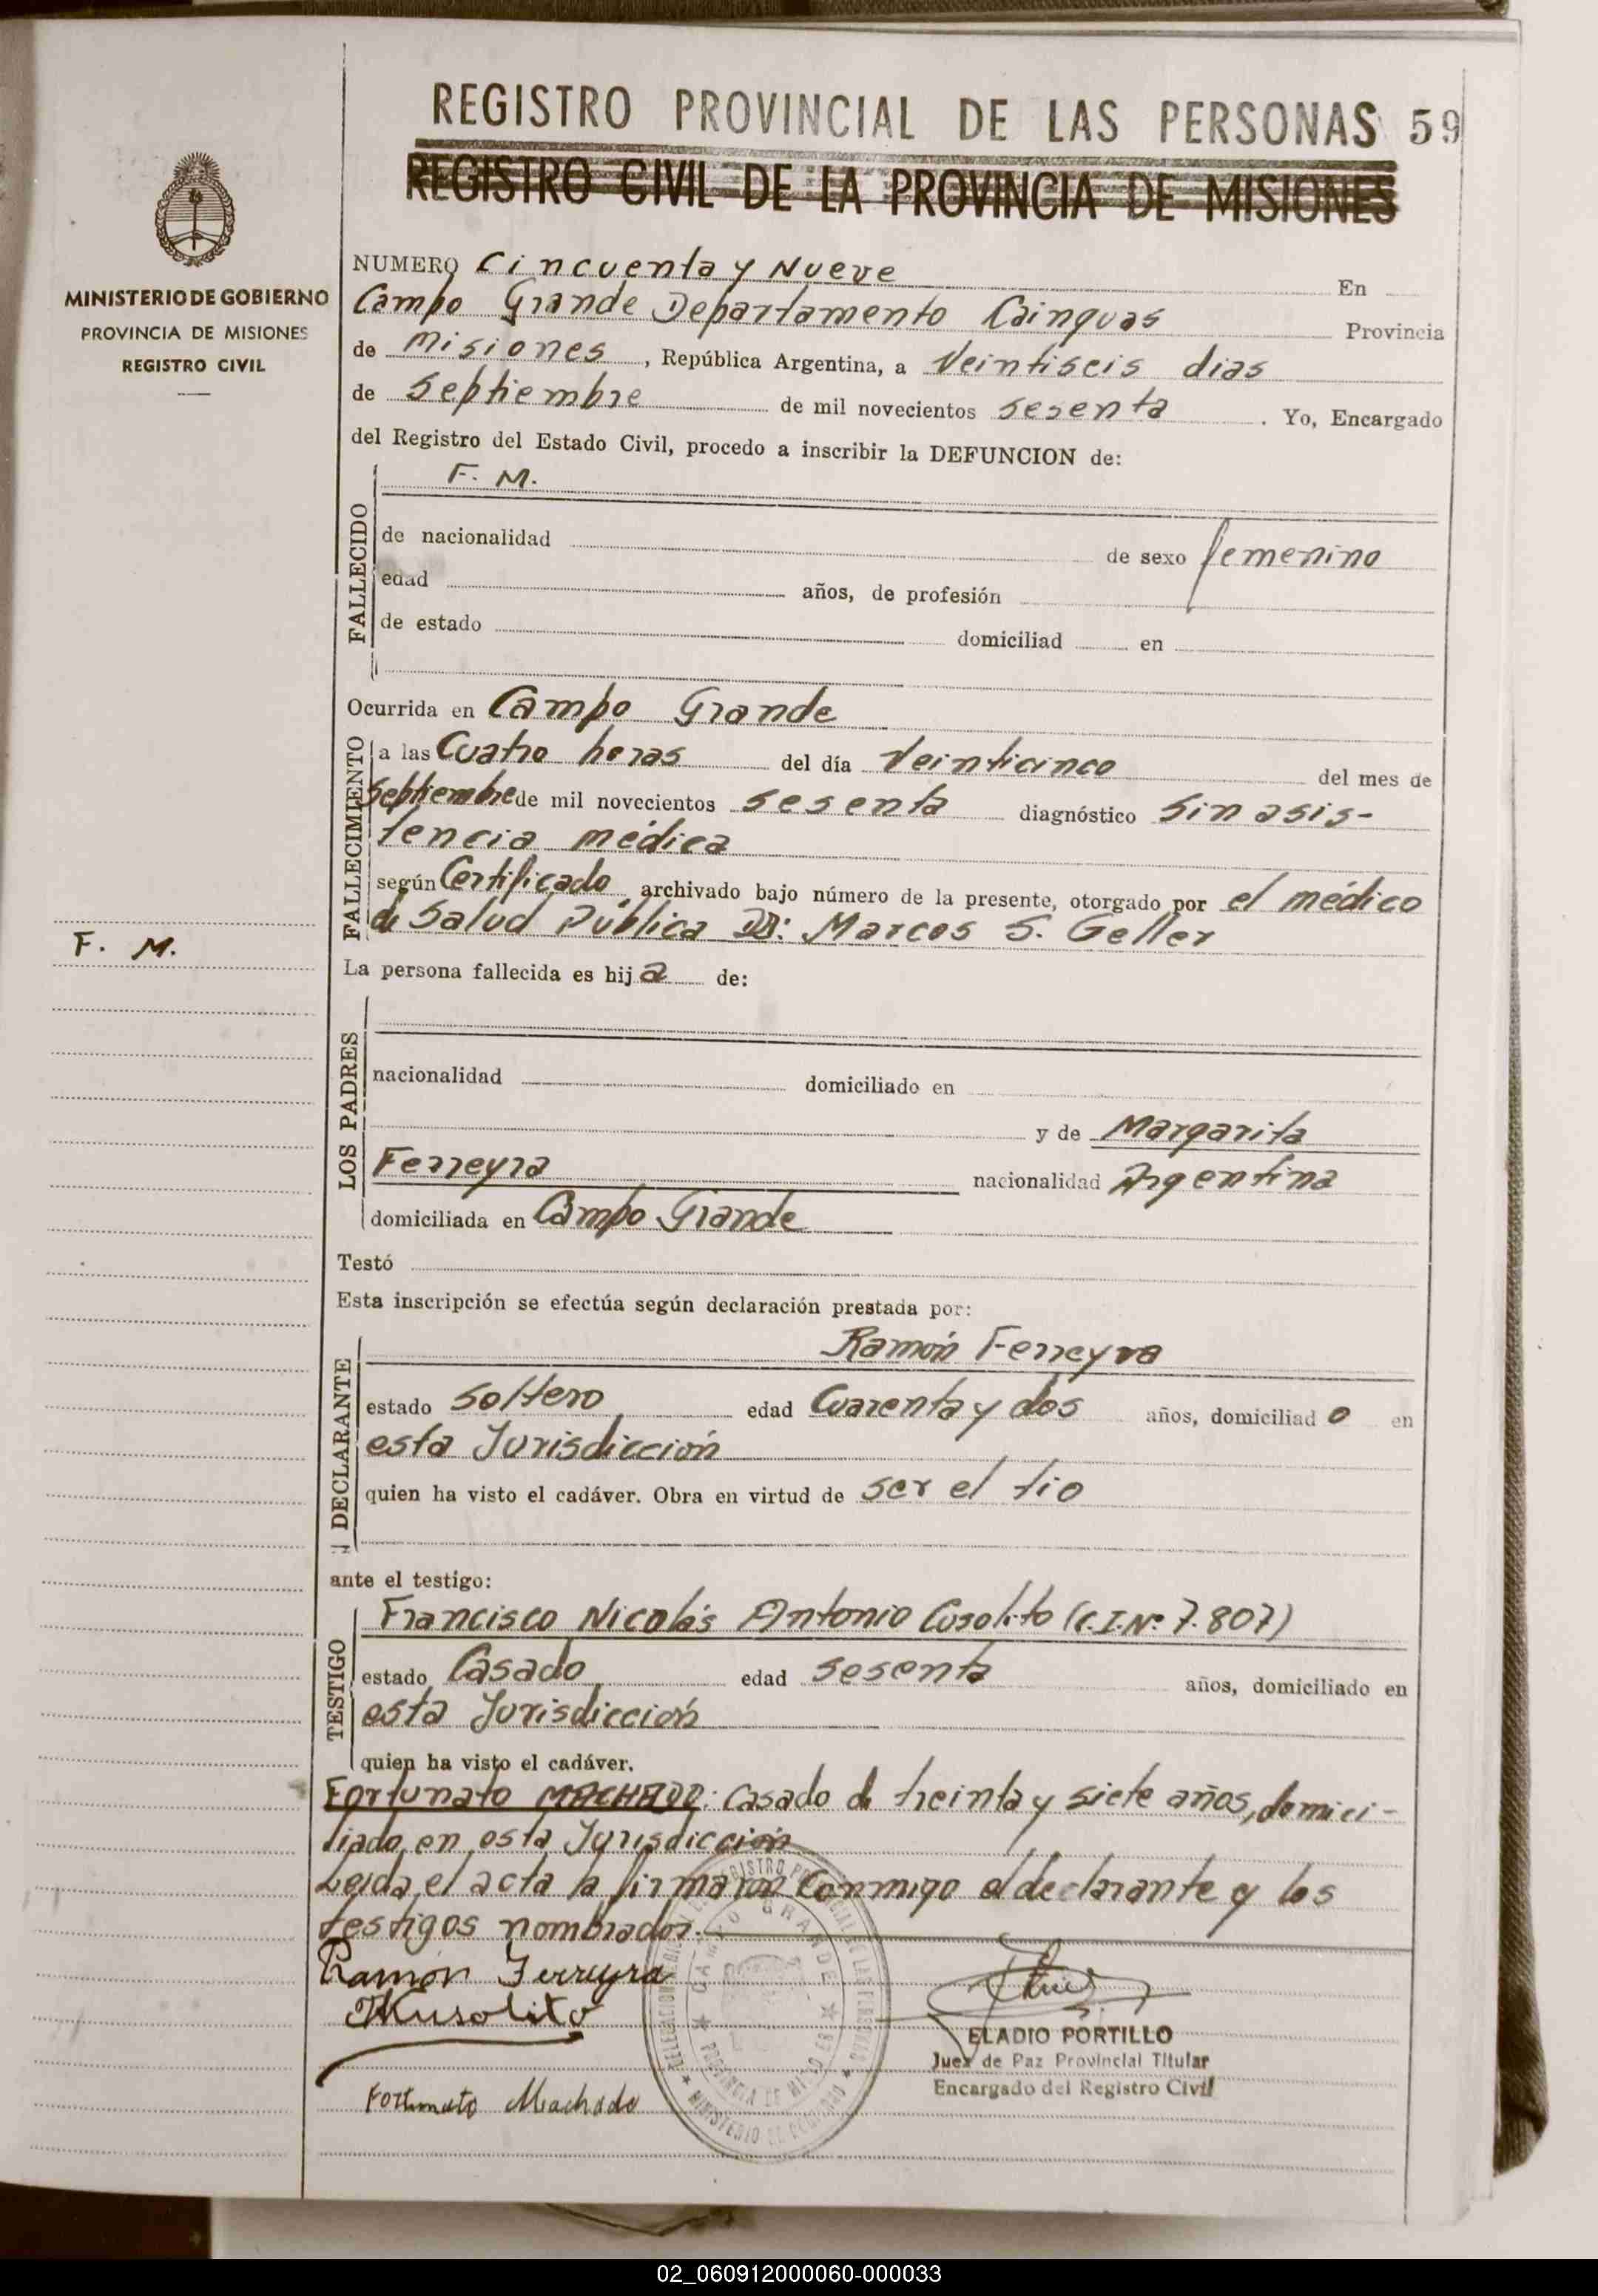 REGISTRO PROVINCIAL DE LAS PERSONAS 59
REGISTRO CIVIL DE LA PROVINCIA DE MISIONES
MINISTERIO DE GOBIERNO
PROVINCIA DE MISIONES
REGISTRO CIVIL
NUMERO Cincuenta y Nueve En
Campo Grande Departamento Cainguas Provincia
de Misiones, República Argentina, a Veintiseis dias
de Septiembre de mil novecientos sesenta. Yo, Encargado
del Registro del Estado Civil, procedo a inscribir la DEFUNCION de:
F. M.
FALLECIDO
de nacionalidad de sexo femenino
edad años, de profesión
de estado domiciliad en
Ocurrida en Campo Grande
FALLECIMIENTO
a las Cuatro horas del día Veinticinco del mes de
Septiembre de mil novecientos sesenta diagnóstico Sin asis-
tencia médica
según Certificado archivado bajo número de la presente, otorgado por el médico
de Salud Pública Dr: Marcos S. Geller
F. M.
La persona fallecida es hija de:
LOS PADRES
nacionalidad domiciliado en
y de Margarita
Ferreyra nacionalidad Argentina
domiciliada en Campo Grande
Testó
Esta inscripción se efectúa según declaración prestada por:
Ramón Ferreyra
DECLARANTE
estado Soltero edad Cuarenta y dos años, domiciliado en
esta Jurisdicción
quien ha visto el cadáver. Obra en virtud de ser el tio
ante el testigo:
Francisco Nicolás Antonio Cusolito (C.I.Nº 7.807)
TESTIGO
estado Casado edad sesenta años, domiciliado en
esta Jurisdicción
quien ha visto el cadáver.
Fortunato MACHADO: Casado de treinta y siete años, domici-
liado en esta Jurisdicción
Leida el acta la firmaron conmigo el declarante y los
testigos nombrados.
Ramón Ferreyra
ELADIO PORTILLO
Juez de Paz Provincial Titular
Encargado del Registro Civil
Fortunato Machado
CAMPO GRANDE
PROVINCIA DE MISIONES
02_060912000060-000033